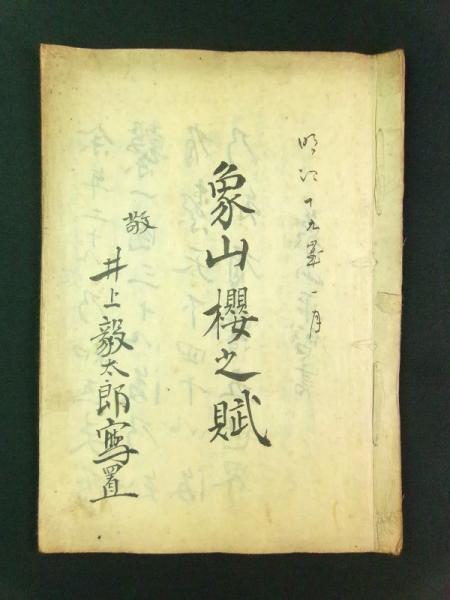 明治十九年一月
象山櫻之賦
敬
井上毅太郎寫置